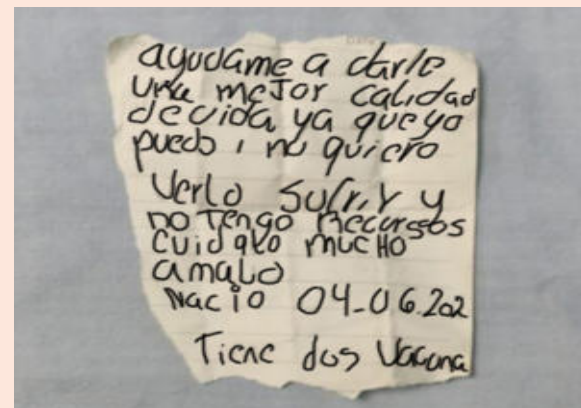 ayudame a darle
una mejor calidad
de vida ya que yo
puedo, no quiero
Verlo Sufrir y
no Tengo Recursos
cuidalo mucho
amalo
Nacio 04-06.202
Tiene dos Vacuna